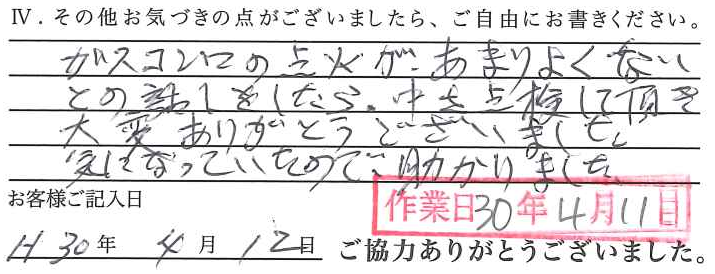 Ⅳ．その他お気づきの点がございましたら、ご自由にお書きください。
ガスコンロの点火が、あまりよくない
との話しをしたら、中を点検して頂き
大変ありがとうございました。
気になっていたので、助かりました。
お客様ご記入日
作業日30年4月11日
H30年 4月 12日 ご協力ありがとうございました。